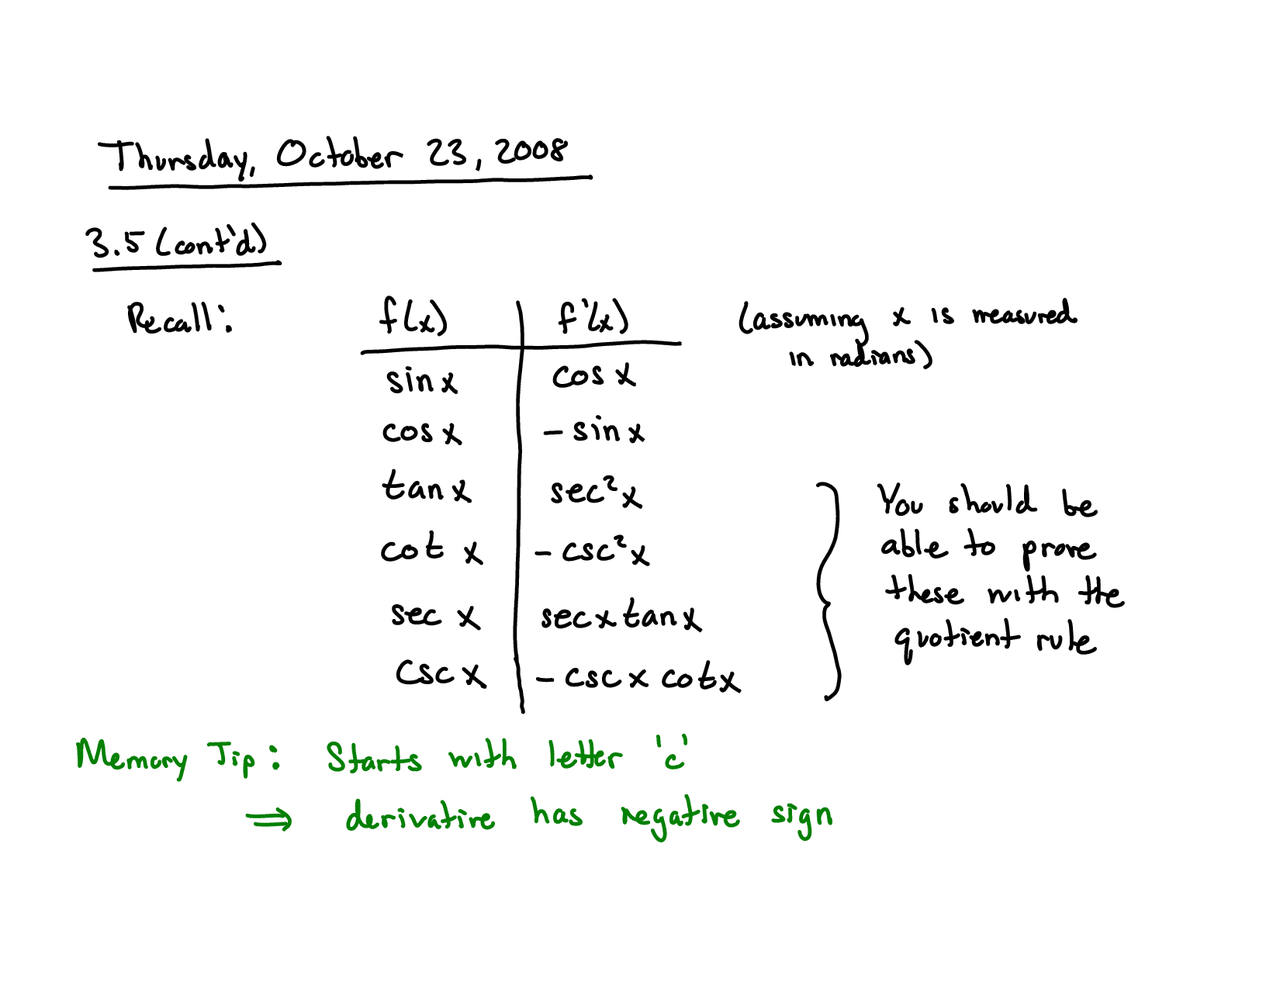 Thursday, October 23, 2008
3.5 (cont'd)
Recall: f(x) f'(x) (assuming x is measured
in radians)
sin x cos x
cos x - sin x
tan x sec²x
cot x - csc²x
sec x sec x tan x
csc x - csc x cot x
You should be
able to prove
these with the
quotient rule
Memory Tip: Starts with letter 'c'
⇒ derivative has negative sign